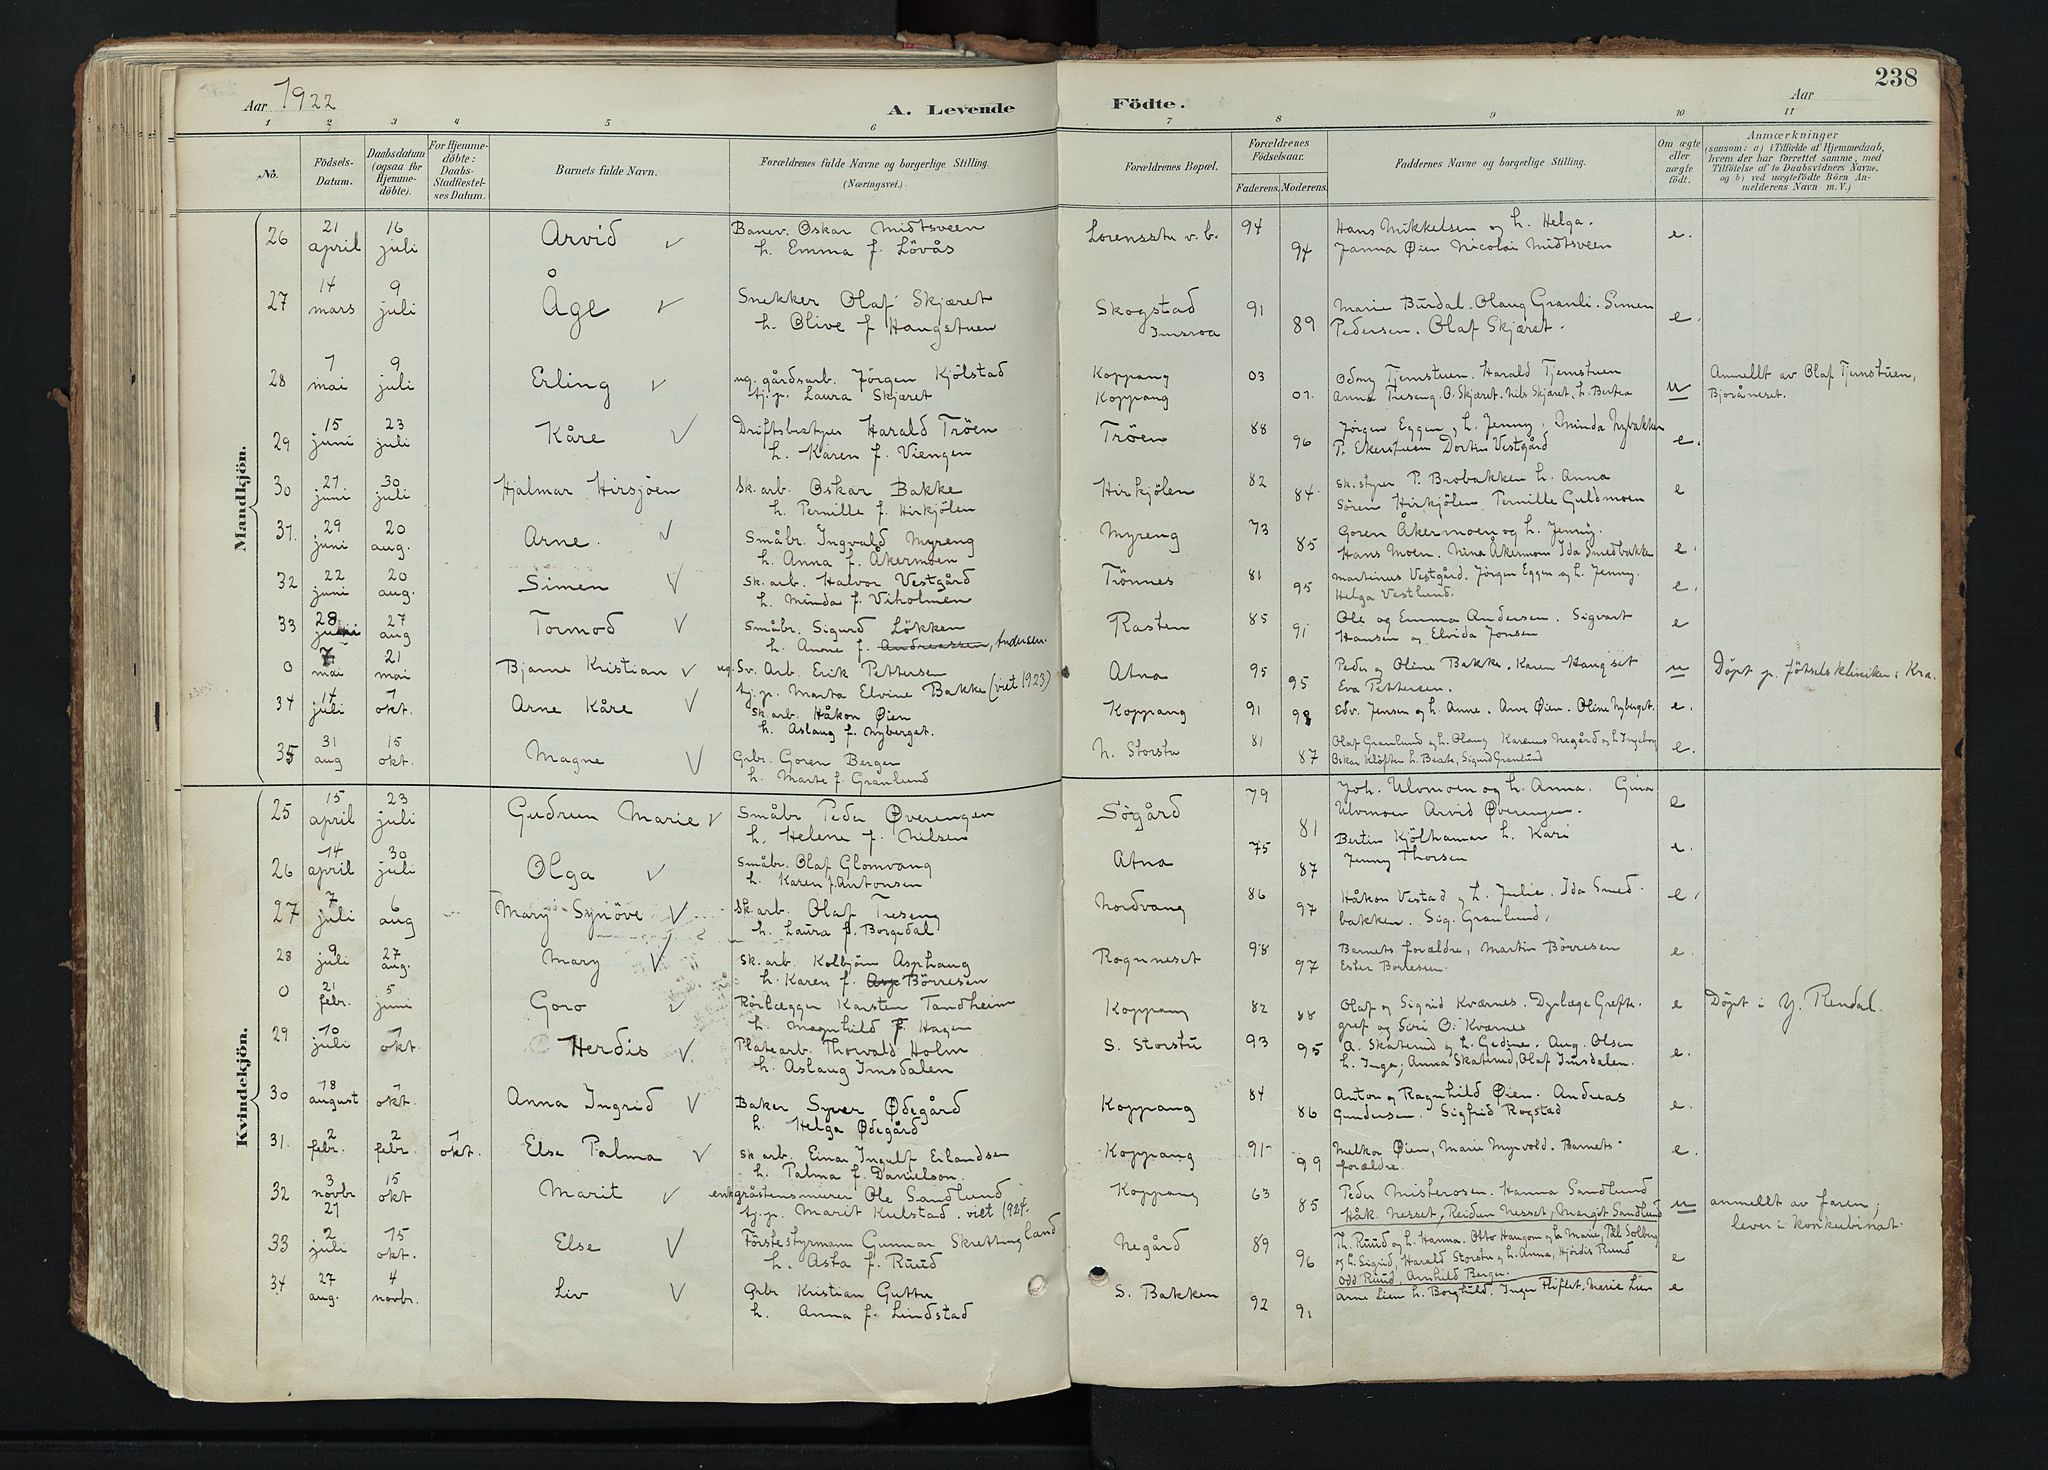 238
Aar 1922
A. Levende Födte.
Aar
1 2 3 4 5 6 7 8 9 10 11
No.
Födsels-Datum.
Daabsdatum (ogsaa för Hjemme-döbte).
For Hjemme-döbte: Daabs-Stadfæstel-ses Datum.
Barnets fulde Navn.
Forældrenes fulde Navne og borgerlige Stilling. (Næringsvei.)
Forældrenes Bopæl.
Forældrenes Födselsaar.
Faderens. Moderens.
Faddernes Navne og borgerlige Stilling.
Om ægte eller uægte födt.
Anmærkninger
(saasom: a) i Tilfælde af Hjemmedaab, hvem der har forrettet samme, med Tilföielse af to Daabsvidners Navne, og b) ved uægtefödte Börn An-melderens Navn m. V.)
Mandkjön.
26 21 april 16 juli Arvid Banev. Oskar Midtsveen Lorensstu v. b. 94 Hans Mikkelsen og h. Helga. e.
h. Emma f. Lövås 94 Janna Øien Nicolai Midtsveen
27 14 mars 9 juli Åge Snekker Olaf Skjæret Skogstad 91 Marie Burdal. Olaug Granli. Simen e.
h. Olive f Haugstuen Imsroa 89 Pedersen. Olaf Skjæret.
28 7 mai 9 juli Erling ug. gårdsarb. Jörgen Kjölstad Koppang 03 Odony Tjernstuen. Harald Tjernstuen u Anmellt av Olaf Tjernstuen,
tj.p. Laura Skjæret Koppang 01. Anna Treseng. O. Skjæret. Nils Skjæret, h. Bertea Bjoråneset.
29 15 juni 23 juli Kåre Driftsbestyrer Harald Tröen Tröen 88 Jörgen Eggen og h. Jenny. Minda Nybakken e.
h. Karen f. Viengen 96 P. Ekerstuen Dortin Vestgård
30 27 juni 30 juli Hjalmar Hirsjöen Sk. arb. Oskar Bakke Hirkjölen 82 Sk. styrer P. Brobakken h. Anna e
h. Pernille f. Hirkjölen 84 Sören Hirkjölen Pernille Guldmoen
31. 29 juni 20 aug. Arne. Småbr. Ingvald Myreng Myreng 73 Goren Åkermoen og h. Jenny. e.
h. Anna f. Åkermoen 85 Hans Moen. Nina Åkermoen Ida Smedbakke
32 22 juni 20 aug. Simen Sk. arb. Halvor Vestgård Trönnes 81 Martinus Vestgård. Jörgen Eggen og h. Jenny. e.
h. Minda f. Viholmen 95 Helga Vestlund.
33 28 juni 27 aug Tormod Småbr. Sigurd Lökken Rasten 85 Ole og Emma Andersen. Sigvart e
h. Anne f. Andreassen, Andersen. 91 Hansen og Elvida Jonsen
0 7 mai 21 mai Bjarne Kristian ug. Sv. Arb. Erik Pettersen Atna 95 Peder og Oline Bakke. Karen Haugset u Döpt p. fötselskliniken i Kra.
tj. p. Marta Elvine Bakke (viet 1923) 95 Eva Pettersen.
34 14 juli 1 okt. Arne Kåre Sk. arb. Håkon Øien Koppang 91 Edv. Jensen og h. Anne. Arve Øien. Oline Nyberget. e.
h. Aslaug f. Nyberget. 98
35 31 aug 15 okt. Magne Grbr. Goren Berger N. Storstu 81 Olaf Granlund og h. Olaug Karenus Negård og h. Ingeborg e.
h. Marte f. Granlund 87 Oskar Klöften h. Beate, Sigurd Granlund
Kvindekjön.
25 15 april 23 juli Gudrun Marie Småbr Peder Øverengen Sögård 79 Joh. Ulvmoen og h. Anna. Gina e
h. Helene f. Nilsen 81 Ulvmoen Arvid Øverengen.
26 14 april 30 juli Olga Småbr. Olaf Glomvang Atna 75 Bertin Kjölhamar h. Kari e.
h. Karen f. Antonsen 87 Jenny Thorsen
27 7 juli 6 aug Mary Synöve Sk. arb. Olaf Treseng Nordvang 86 Håkon Vestad og h. Julie. Ida Smed- e.
h. Laura f. Borgedal 97 bakken. Sig. Granlund.
28 9 juli 27 aug. Mary Sk. arb. Kolbjörn Asphaug Rognneset 98 Barnets forældre, Martin Börresen e.
h. Karen f. Asp Börresen 97 Ester Borresen.
0 21 febr. 5 juni Goro Rörlægger Karsten Tandheim Koppang 82 Olaf og Sigrid Kværnes. Dyrlæge Grefte- e Döpt i Y. Rendal.
h. Magnhild f. Hagen 88 gref og Siri O. Kværnes
29 10 juli 1 okt. Herdis Platearb. Thorvald Holm S. Storstu 93 A. Skaterud og h. Gedine. Aug. Olsen e.
h. Aslaug Imsdalen 95 h. Inga; Anna Skaterud, Olaf Imsdalen.
30 18 august 1 okt. Anna Ingrid Baker Syver Ødegård Koppang 84 Anton og Ragnhild Øien. Andreas e.
h. Helga Ødegård 86 Gundersen. Sigfrid Rogstad
31. 2 febr. 2 febr. 1 okt. Else Palma Sk. arb. Einar Ingulf Erlandsen Koppang 91 Melkor Øien, Marie Myrvold. Barnets e.
h. Palma f. Danielson. 99 forældre.
32 3 novbr 21 15 okt Marit enk. gråstensmurer Ole Sandlund Koppang 63 Peder Misterosen. Hanna Sandlund u anmellt av faren;
tj. p. Marit Kulstad. viet 1924. 85 Håk. Nesset, Reidun Nesset, Margit Sandlund lever i konkubinat.
33 2 juli 15 okt. Else Förstestyrmann Gunnar Skretting land Negård 89 Th. Ruud og h. Hanna. Otto Haugom og h. Marie, Pål Solberg e
h. Asta f. Ruud 96 og h. Sigrid, Harald Storstu og h. Anna, Hjördis Ruud
Odd Ruud, Arnhild Berger.
34 27 aug. 4 novbr. Liv Grbr Kristian Guttu S. Bakken 92 Arne Lien h. Borghild. Inger Fliflet, Marie Lien e
h. Anna f. Lindstad 91